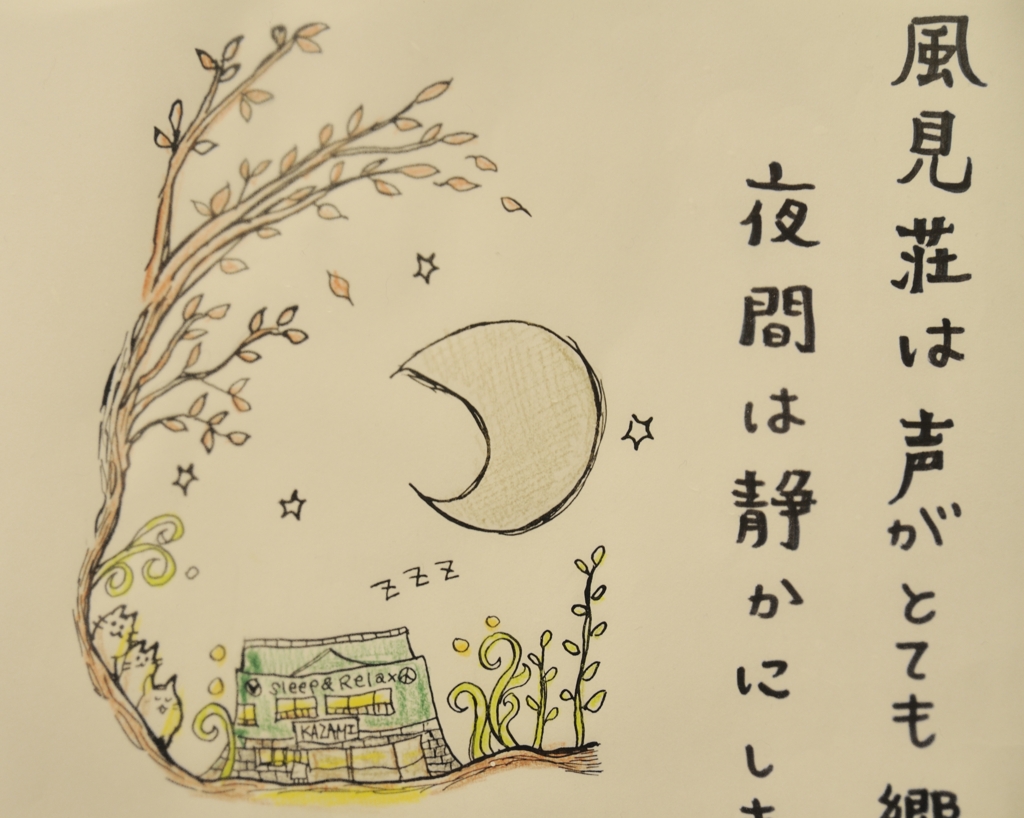 風見荘は声がとても
夜間は静かにし
z z z
Sleep & Relax
KAZAMI